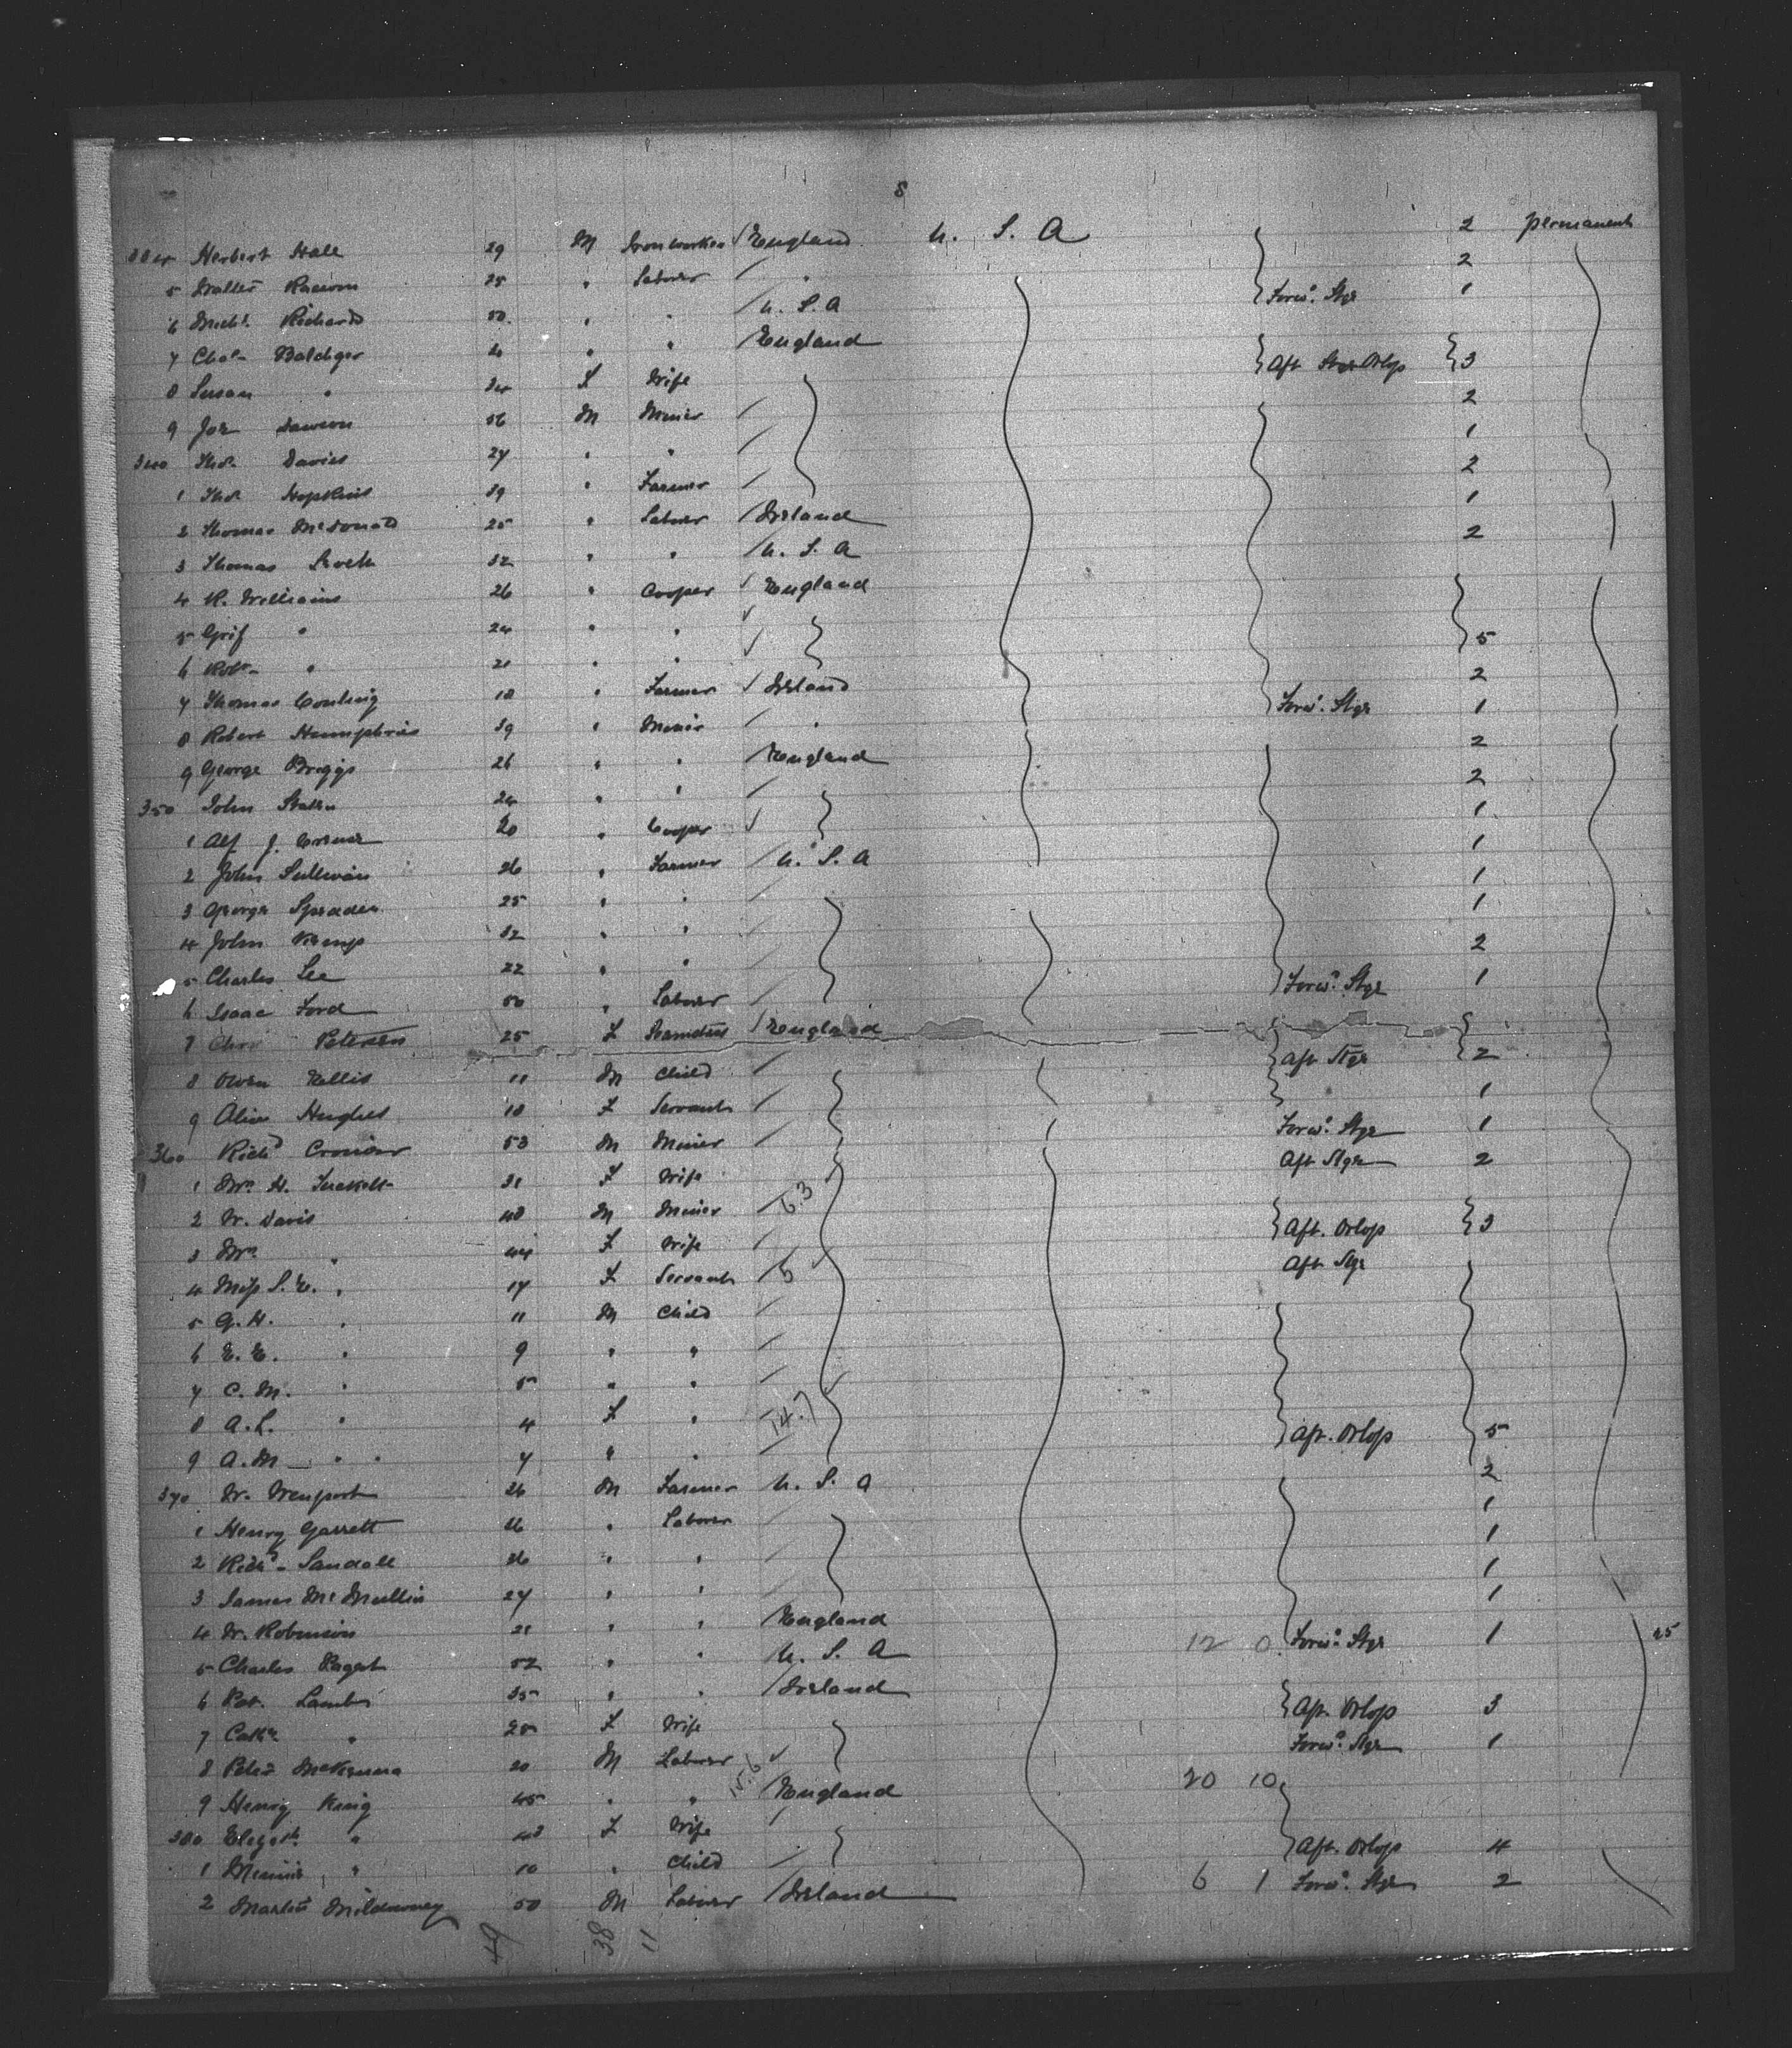 8
334 Herbert Hall 29 M Ironworker / England U. S. A 2 permanent
5 Walter 25 " Laborer / " 2
6 Michl. Richards 50 " " / U. S. A Forwd. Stge 1
7 Chas. " " / England
8 Susan " 34 F Wife Aft Orlop 3
9 Jos. Dawson 56 M Miner / 2
340 Thos. Davies 27 " " / 1
1 Thos. Hopkins 39 " Farmer / 2
2 Thomas McDonald 25 " Laborer / Ireland 1
3 Thomas 32 " " / U. S. A 2
4 R. Williams 26 " Cooper ✓ England
5 Grif " 24 " " ✓
6 Robt. " 21 " " ✓ 5
7 Thomas Conling 18 " Farmer ✓ Ireland 2
8 Robert Humphries 39 " Miner / " Forwd. Stge 1
9 George Briggs 26 " " / England 2
350 John 24 " " / 2
1 Alf J. 20 " Cooper ✓ 1
2 John Sullivan 26 " Farmer / U. S. A 1
3 George 25 " " / 1
4 John Kemp 32 " " / 1
5 Charles Lee 22 " " / 2
6 Isaac Ford 50 " Laborer / Forwd. Stge 1
7 Petersen 25 F / England
8 Owen Kellis 11 M Child / Aft Stge 2
9 Alice Hughes 18 F Servant / 1
360 Richd. 53 M Miner / Forwd. Stge 1
1 Mrs. H. 31 F Wife / Aft Stge 2
2 W. Davis 48 M Miner / 6.3
3 Mrs. " 44 F Wife / Aft. Orlop 3
4 Miss S. E. " 17 F Servant / 5 Aft Stge
5 G. H. " 11 M Child /
6 E. E. " 9 " " /
7 C. M. " 5 " " /
8 A. L. " 4 F " / 14.7
9 A. M. " " 7 " " / Aft. Orlop 5
370 W. 26 M Farmer U. S. A 2
1 Henry Garrett 26 " Laborer / 1
2 Richd. Sandall 26 " " / 1
3 James McMullin 27 " " / 1
4 W. Robinson 21 " " England 1
5 Charles 52 " " U. S. A 12 0 Forwd. Stge 1 25
6 Pat. 35 " " / Ireland
7 Cathe. " 25 F Wife Aft. Orlop 3
8 Peter McKenna 20 M Laborer ✓ Forwd. Stge 1
9 Henry King 45 " " 15.6 / England 20 10
380 Elizath. " 43 F Wife /
1 Minnie " 10 " Child / Aft. Orlop 4
2 Martin 50 M Laborer / Ireland 6 1 Forwd. Stge 2
38 11